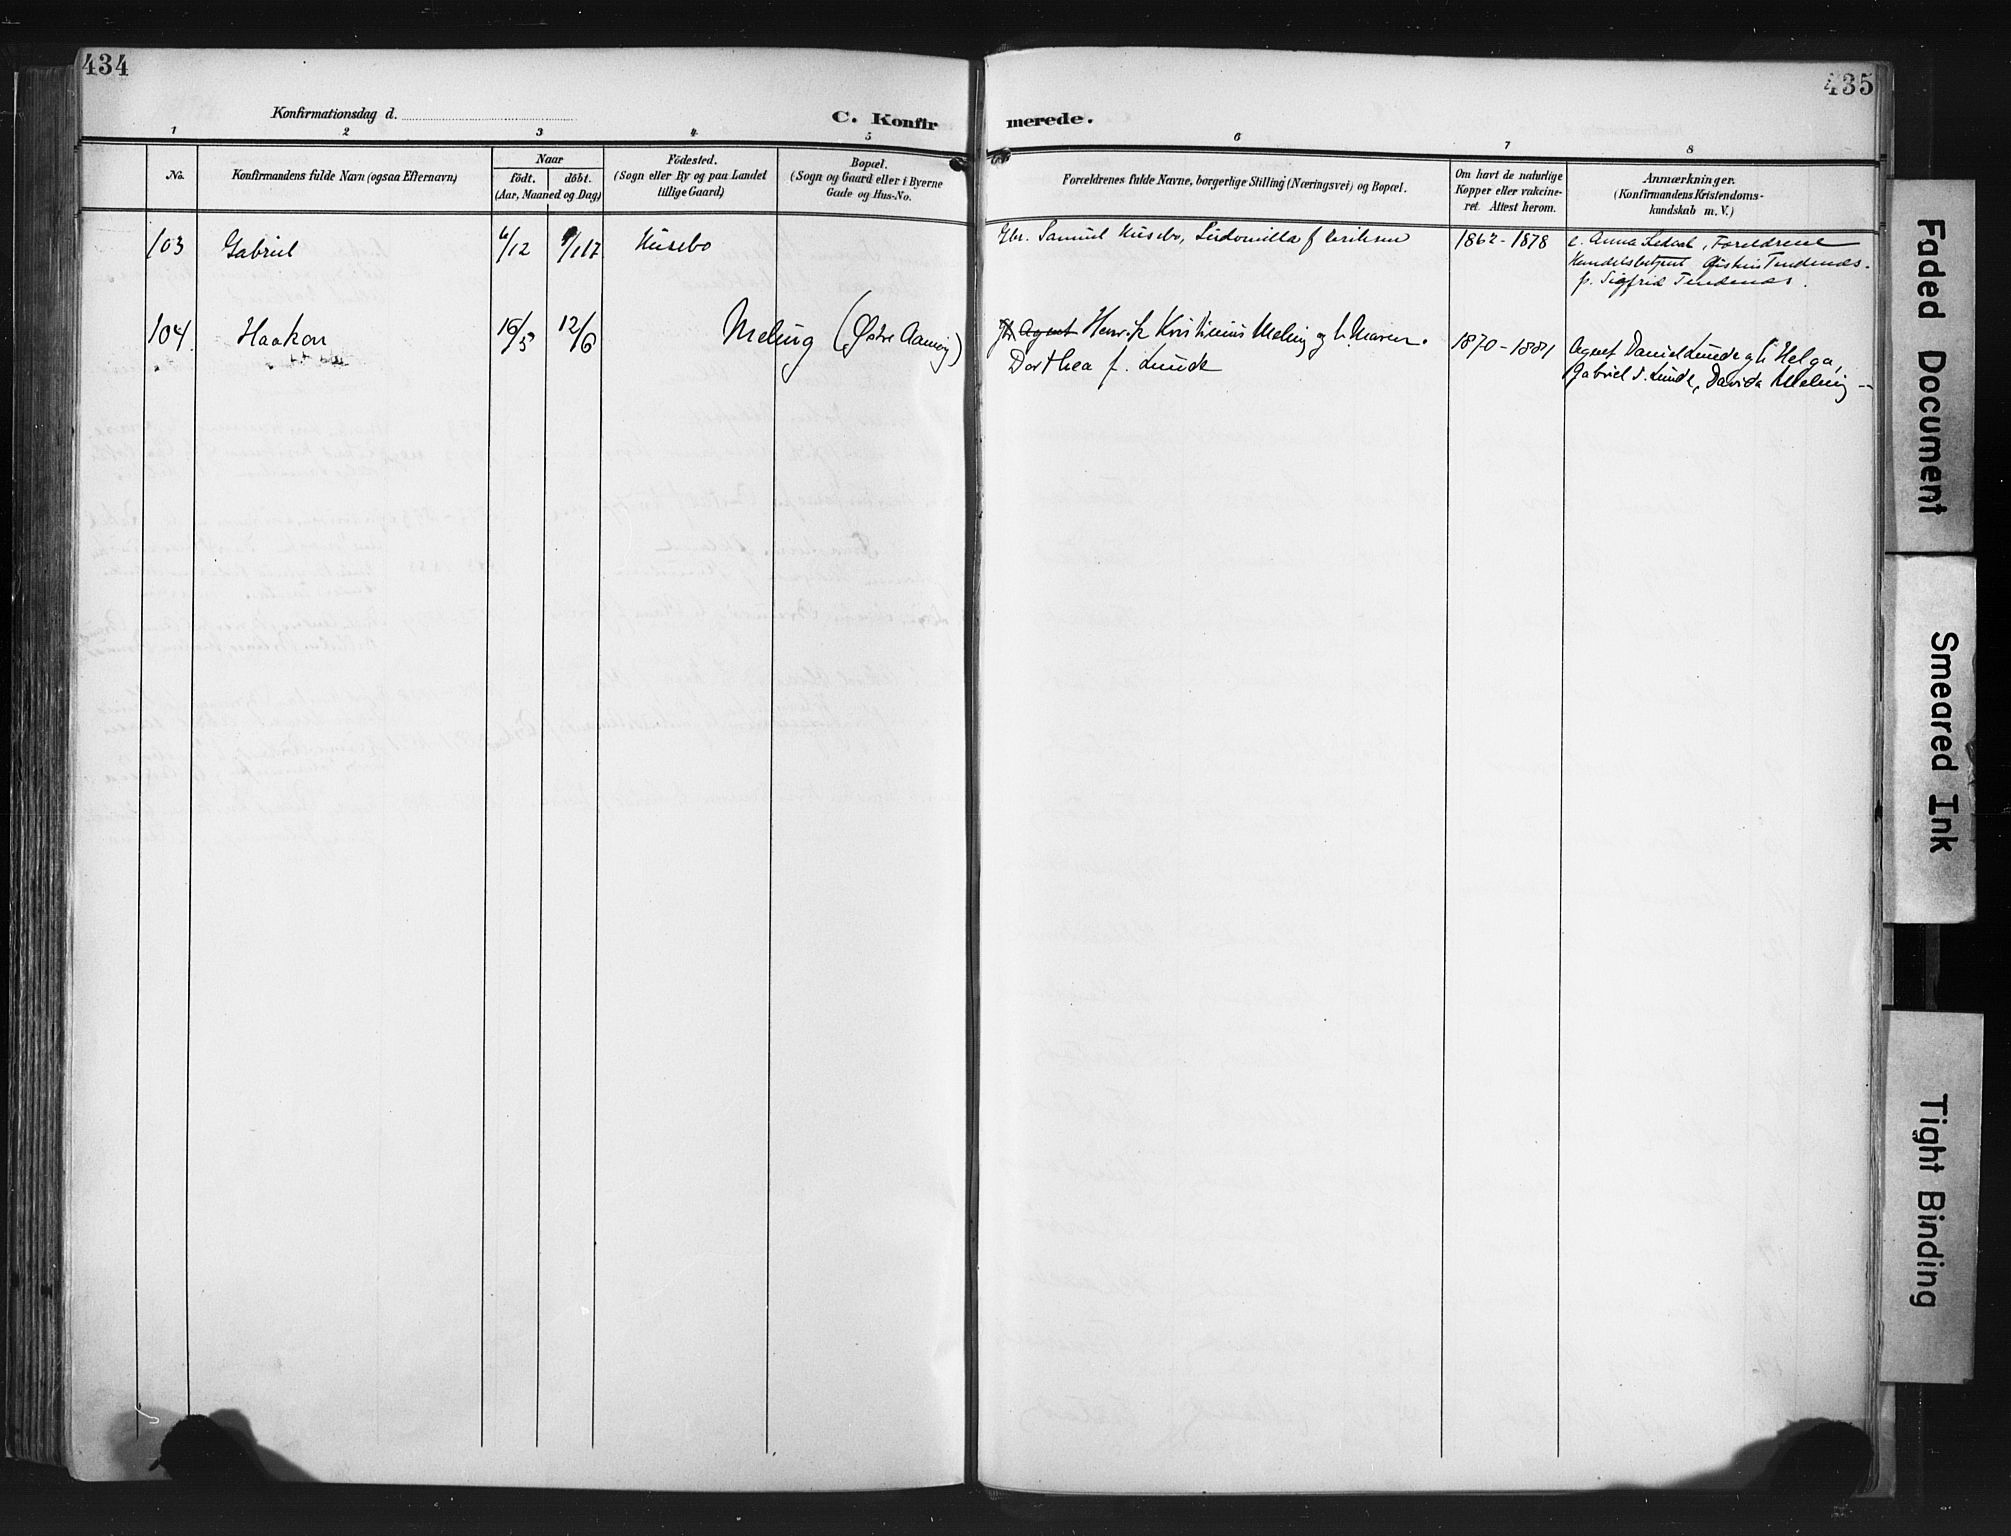 434
435
Konfirmationsdag d.
C. Konfir
merede.
1 2 3 4 5
6 7 8
No.
Konfirmandens fulde Navn (ogsaa Efternavn)
Naar
födt. döbt.
(Aar, Maaned og Dag)
Födested.
(Sogn eller By og paa Landet
tillige Gaard)
Bopæl.
(Sogn og Gaard eller i Byerne
Gade og Hus-No.
Forældrenes fulde Navne, borgerlige Stilling (Næringsvei) og Bopæl.
Om havt de naturlige
Kopper eller vakcine-
ret Attest herom.
Anmærkninger.
(Konfirmandens Kristendoms-
kundskab m. V.)
103 Gabriel 4/12 9/1 17 Husebo
Gbr. Samuel Husebo, Ludomilla f Eriksen 1862-1878 e. Anna Ledaal, Forældrene
Handelsbetjent Tendenes.
f. Sigfrid Tendenes.
104. Haakon 16/5 12/6 Meling (Østre Aamøy)
Agent Henrik Kristinius Meling og h. Maren 1870-1881 Agent Daniel Lunde og h Helga,
Dorthea f. Lunde
Gabriel S. Lunde, Davida Meling
Faded Document
Smeared Ink
Tight Binding